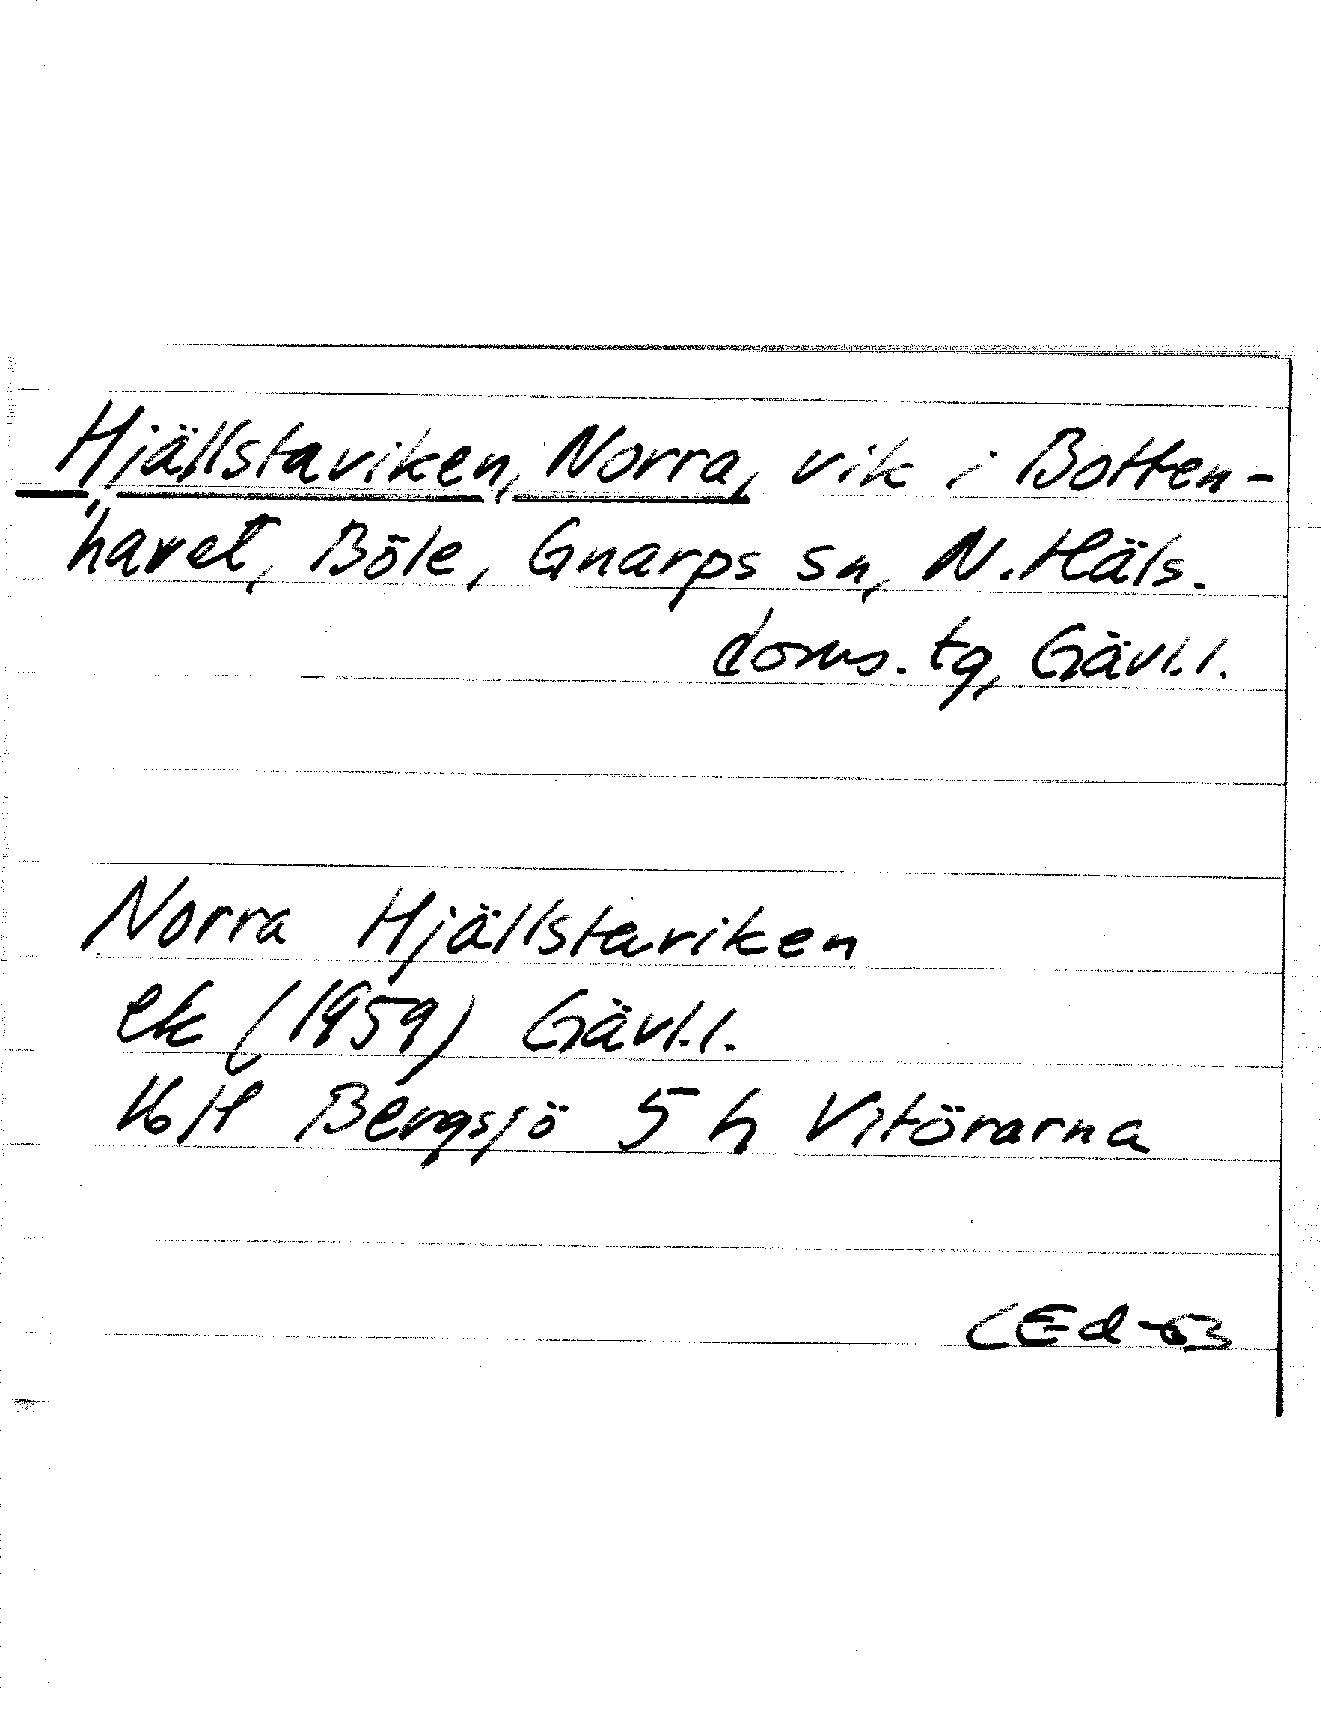 Hjällstaviken, Norra, vik i Botten-
havet, Böle, Gnarps sn, N. Häls.
doms. tg, Gävl.l.
Norra Hjällstaviken
ek (1959) Gävl.l.
16 H Bergsjö 5 h Vitörarna
CEd-63